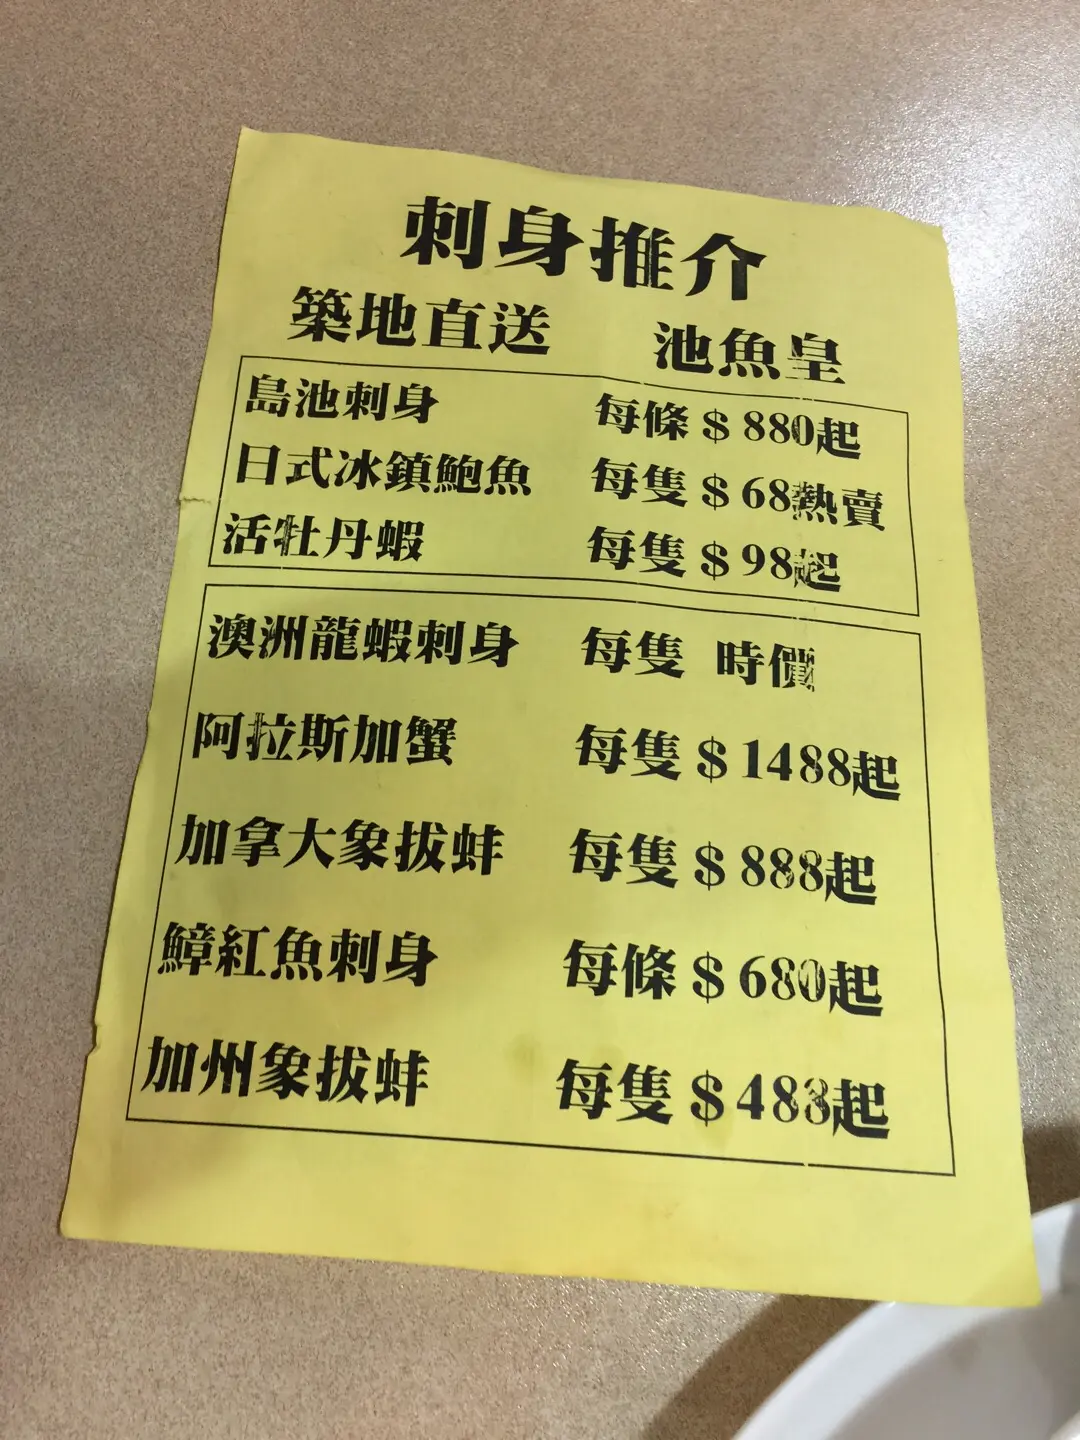 刺身推介
築地直送 池魚皇
島池刺身 每條 $ 880起
日式冰鎮鮑魚 每隻 $ 68熱賣
活牡丹蝦 每隻 $ 98起
澳洲龍蝦刺身 每隻 時價
阿拉斯加蟹 每隻 $ 1488起
加拿大象拔蚌 每隻 $ 888起
鱆紅魚刺身 每條 $ 680起
加州象拔蚌 每隻 $ 488起